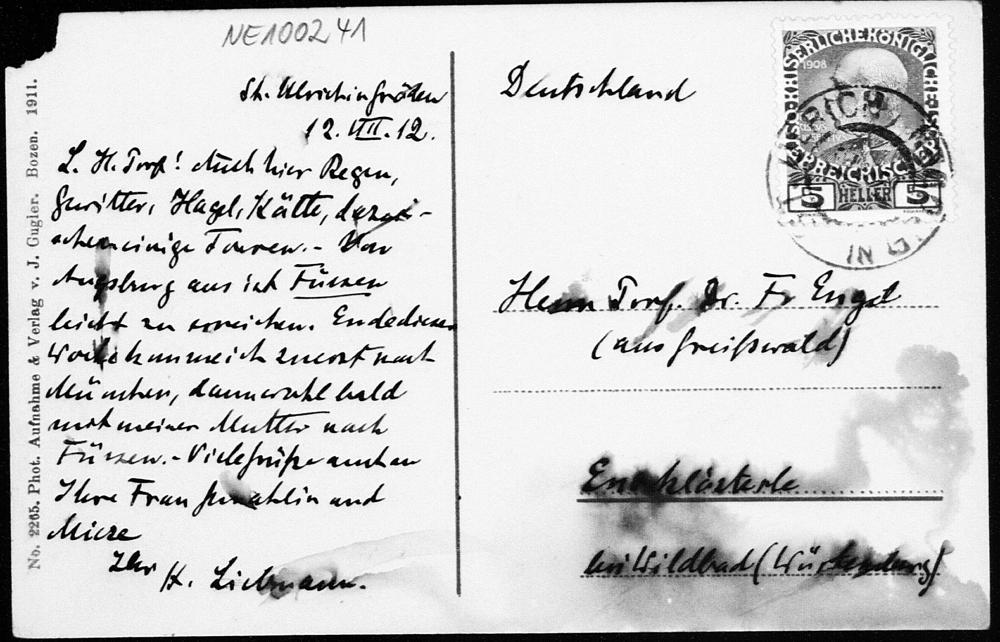 NE100241
St. Ulrich in Gröden
12. VII. 12.
L. H. Prof! Auch hier Regen,
Gewitter, Hagel, Kälte, dazwi-
schen einige Touren. - Von
Augsburg aus ist Füssen
leicht zu erreichen. Ende dieser
Woche komme ich zuerst nach
München, dann wohl bald
mit meiner Mutter nach
Füssen. - Viele Grüße auch an
Ihre Frau Gemahlin und
Mieze
Ihr H. Liebmann.
No. 2265. Phot. Aufnahme & Verlag v. J. Gugler. Bozen. 1911.
Deutschland
KAISERLICHE KÖNIGLICHE
1908
5 HELLER 5
Herrn Prof. Dr. Fr Engel
(aus Greifswald)
Enzklösterle
bei Wildbad (Württemberg)